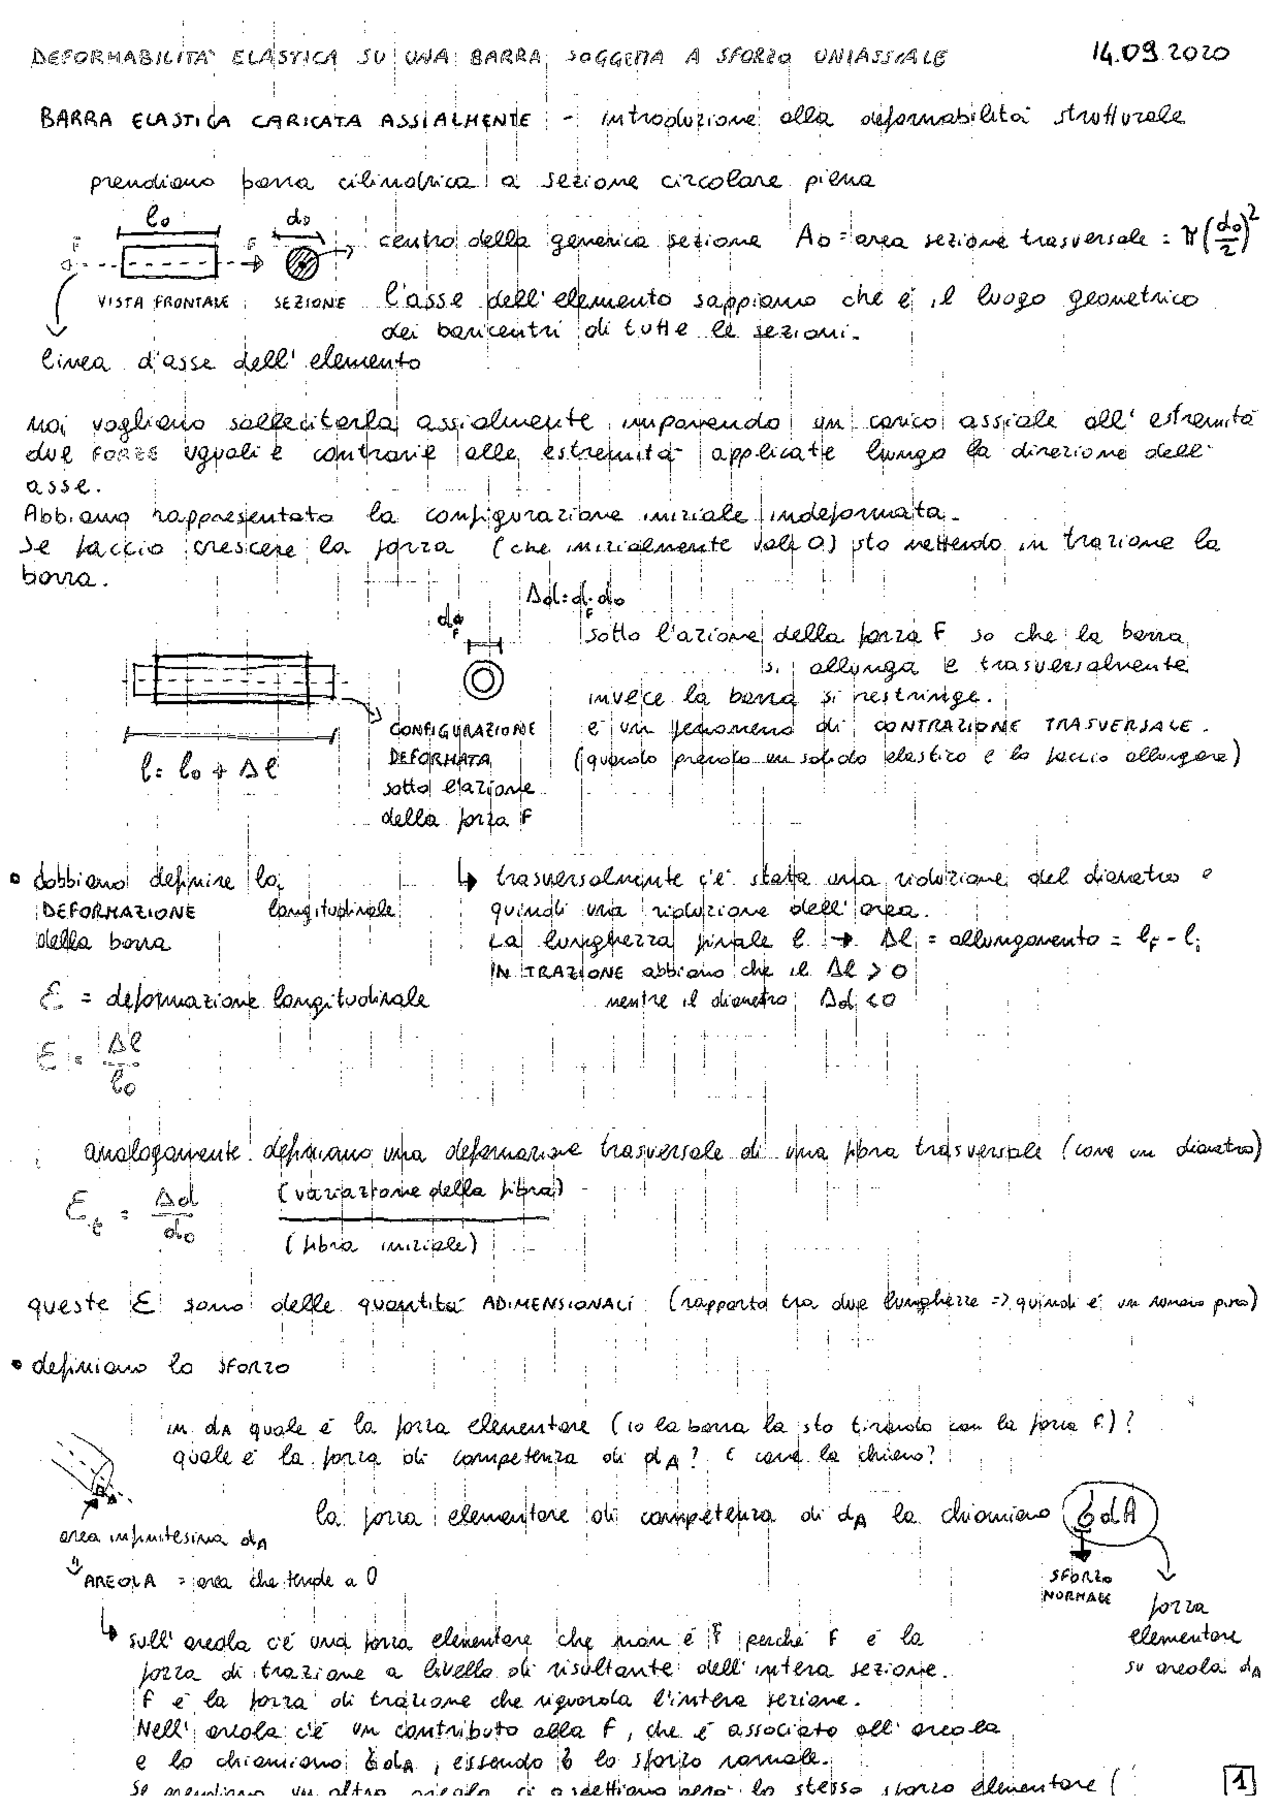 DEFORMABILITA' ELASTICA SU UNA BARRA SOGGETTA A SFORZO UNIASSIALE 14.09.2020
BARRA ELASTICA CARICATA ASSIALMENTE - introduzione alla deformabilità strutturale
prendiamo barra cilindrica a sezione circolare piena
l₀ d₀
F F
centro della generica sezione A₀ = area sezione trasversale = π(d₀/2)²
VISTA FRONTALE SEZIONE
l'asse dell'elemento sappiamo che è il luogo geometrico
dei baricentri di tutte le sezioni.
linea d'asse dell'elemento
noi vogliamo sollecitarla assialmente imponendo un carico assiale all'estremità
due FORZE uguali e contrarie alle estremità applicate lungo la direzione dell'
asse.
Abbiamo rappresentato la configurazione iniziale indeformata.
Se faccio crescere la forza (che inizialmente vale 0) sto mettendo in trazione la
barra.
Δd = d_F - d₀
d_F
sotto l'azione della forza F so che la barra
si allunga e trasversalmente
invece la barra si restringe.
è un fenomeno di CONTRAZIONE TRASVERSALE.
(quando prendo un solido elastico e lo faccio allungare)
CONFIGURAZIONE
DEFORMATA
sotto l'azione
della forza F
l = l₀ + Δl
• dobbiamo definire la
DEFORMAZIONE longitudinale
della barra
↳ trasversalmente c'è stata una riduzione del diametro e
quindi una riduzione dell'area.
La lunghezza finale l → Δl = allungamento = l_F - l_i
IN TRAZIONE abbiamo che il Δl > 0
mentre il diametro Δd < 0
ε = deformazione longitudinale
ε = Δl/l₀
analogamente definiamo una deformazione trasversale di una fibra trasversale (come un diametro)
ε_t = Δd/d₀ (variazione della fibra)
(fibra iniziale)
queste ε sono delle quantità ADIMENSIONALI (rapporto tra due lunghezze => quindi è un numero puro)
• definiamo lo SFORZO
in dA quale è la forza elementare (io la barra la sto tirando con la forza F)?
quale è la forza di competenza di dA? E come la chiamo?
la forza elementare di competenza di dA la chiamiamo σdA
area infinitesima dA
AREOLA = area che tende a 0
SFORZO
NORMALE
forza
elementare
su areola dA
↳ sull'areola c'è una forza elementare che non è F perché F è la
forza di trazione a livello di risultante dell'intera sezione.
F è la forza di trazione che riguarda l'intera sezione.
Nell'areola c'è un contributo alla F, che è associato all'areola
e lo chiamiamo σdA, essendo σ lo sforzo normale.
Se prendiamo un'altra areola ci aspettiamo però lo stesso sforzo elementare (
1